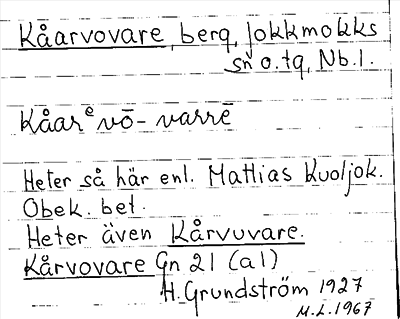 Kåarvovare, berg, Jokkmokks
sn o. tg, Nb. l.
Kåarᵉvō-varrē
Heter så här enl. Mattias Kuoljok.
Obek. bet.
Heter även Kårvuvare.
Kårvovare Gn 21 (a1)
H. Grundström 1927
M.L. 1967